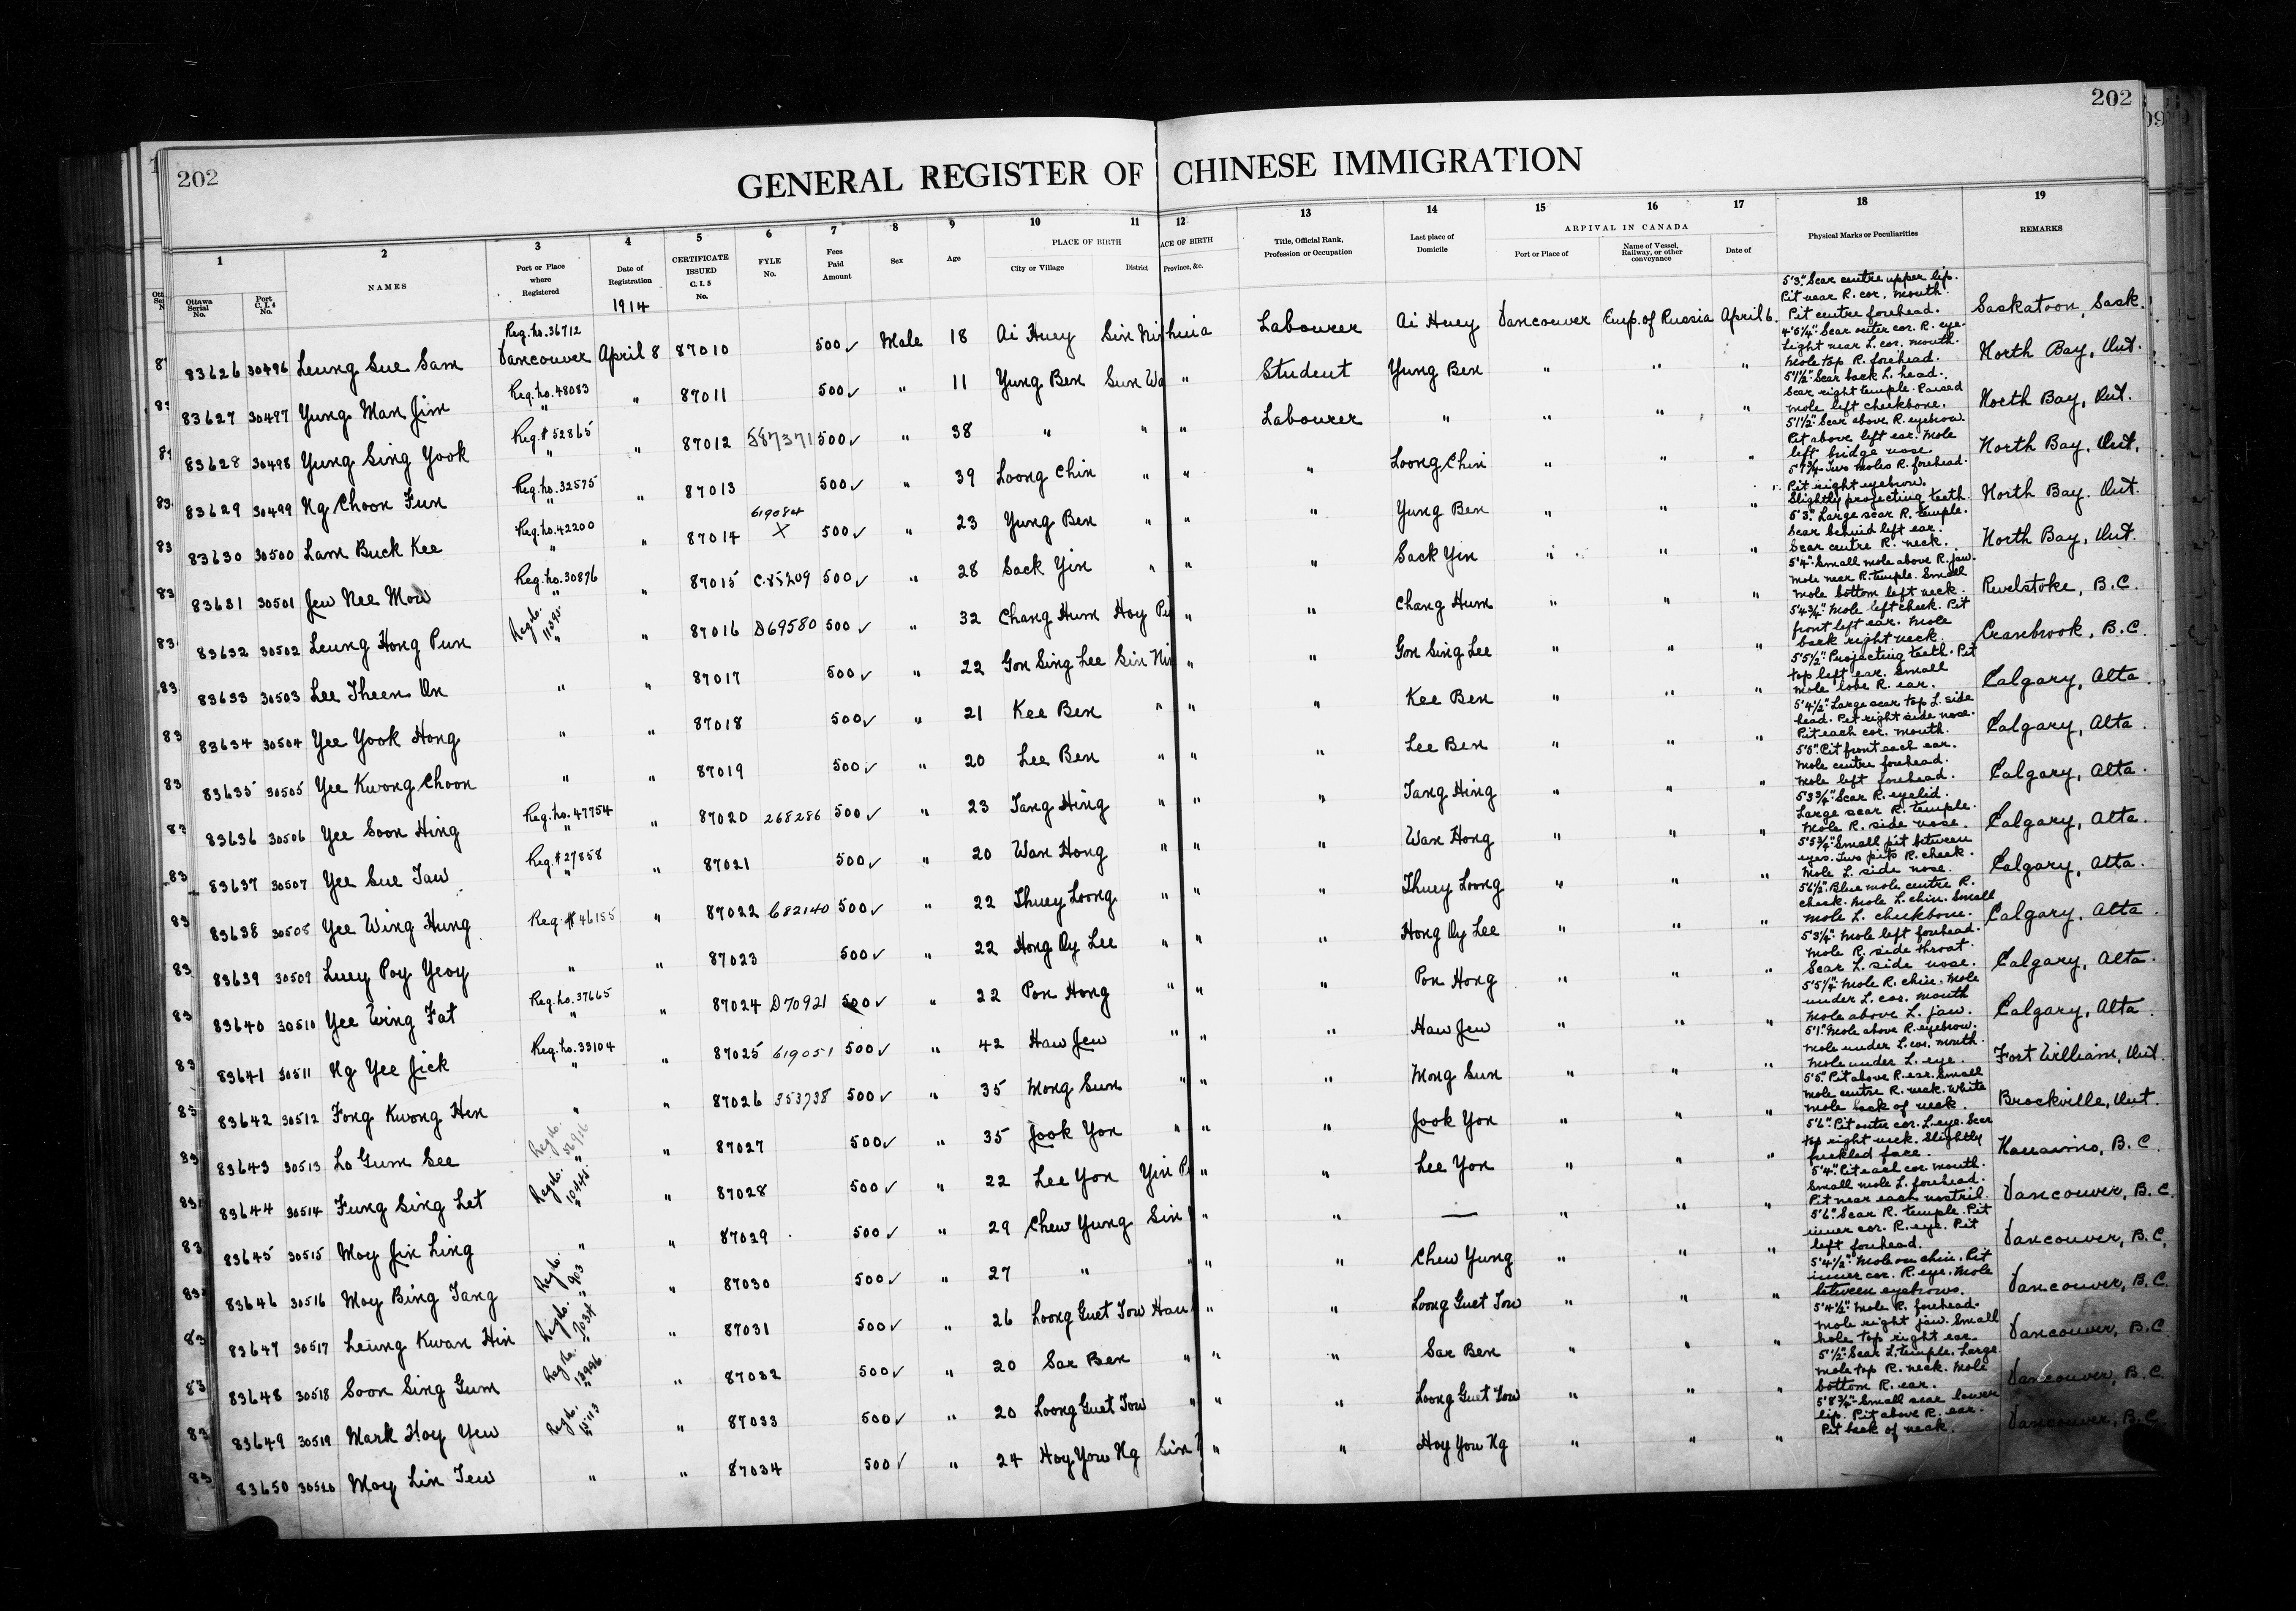 202
202
GENERAL REGISTER OF CHINESE IMMIGRATION
1 2 3 4 5 6 7 8 9 10 11 12 13 14 15 16 17 18 19
Ottawa Serial No. Port C.I.4 No. NAMES Port or Place where Registered Date of Registration CERTIFICATE ISSUED C.I.5 No. FYLE No. Fees Paid Amount Sex Age PLACE OF BIRTH City or Village District ACE OF BIRTH Province, &c. Title, Official Rank, Profession or Occupation Last place of Domicile ARRIVAL IN CANADA Port or Place of Name of Vessel, Railway, or other conveyance Date of Physical Marks or Peculiarities REMARKS
1914
83626 30496 Leung Sue Sam Reg. No. 36712 Vancouver April 8 87010 500 ✓ Male 18 Ai Huey Sin Ni hina Labourer Ai Huey Vancouver Emp. of Russia April 6. 5'3". Scar centre upper lip. Pit near R. cor. mouth. Pit centre forehead. Saskatoon, Sask.
83627 30497 Yung Man Jim Reg. No. 48083 " " 87011 500 ✓ " 11 Yung Ben Sun Wo " Student Yung Ben " " " 4'5¼". Scar outer cor. R. eye. Light near L. cor. mouth. Mole top R. forehead. North Bay, Ont.
83628 30498 Yung Sing Yook Reg. # 52865 " " 87012 587371 500 ✓ " 38 " " " Labourer " " " " 5'1½". Scar back L. head. Scar right temple. Raised mole left cheekbone. North Bay, Ont.
83629 30499 Ng Choon Fun Reg. No. 32575 " " 87013 500 ✓ " 39 Loong Chin " " " Loong Chin " " " 5'1½". Scar above R. eyebrow. Pit above left ear. Mole left bridge nose. North Bay, Ont.
83630 30500 Lam Buck Kee Reg. No. 42200 " " 87014 619084 X 500 ✓ " 23 Yung Ben " " " Yung Ben " " " 5'7¾". Two moles R. forehead. Pit right eyebrow. Slightly projecting teeth. North Bay. Ont.
83631 30501 Jew Nee Mow Reg. No. 30876 " " 87015 C.85209 500 ✓ " 28 Sack Yin " " " Sack Yin " " " 5'3". Large scar R. temple. Scar behind left ear. Scar centre R. neck. North Bay, Ont.
83632 30502 Leung Hong Pun Reg. No. 11395 " " 87016 D69580 500 ✓ " 32 Chang Hum Hoy Pi " " Chang Hum " " " 5'4". Small mole above R. jaw. Mole near R. temple. Small mole bottom left neck. Revelstoke, B.C.
83633 30503 Lee Theen On " " 87017 500 ✓ " 22 Gon Sing Lee Sin Ni " " Gon Sing Lee " " " 5'4¾". Mole left cheek. Pit front left ear. Mole back right neck. Cranbrook, B.C.
83634 30504 Yee Yook Hong " " 87018 500 ✓ " 21 Kee Ben " " " Kee Ben " " " 5'5½". Projecting teeth. Pit top left ear. Small mole lobe R. ear. Calgary, Alta.
83635 30505 Yee Kwong Choon " " 87019 500 ✓ " 20 Lee Ben " " " Lee Ben " " " 5'4½". Large scar top L. side head. Pit right side nose. Pit each cor. mouth. Calgary, Alta.
83636 30506 Yee Soon Hing Reg. No. 47754 " " 87020 268286 500 ✓ " 23 Tang Hing " " " Tang Hing " " " 5'5". Pit front each ear. Mole centre forehead. Mole left forehead. Calgary, Alta.
83637 30507 Yee Sue Taw Reg. # 27858 " " 87021 500 ✓ " 20 Wan Hong " " " Wan Hong " " " 5'3¾". Scar R. eyelid. Large scar R. temple. Mole R. side nose. Calgary, Alta.
83638 30508 Yee Wing Hung Reg. # 46155 " 87022 682140 500 ✓ " 22 Thuey Loong " " " Thuey Loong " " " 5'5¾". Small pit between eyes. Two pits R. cheek. Mole L. side nose. Calgary, Alta.
83639 30509 Luey Poy Yeoy " " 87023 500 ✓ " 22 Hong Oy Lee " " " Hong Oy Lee " " " 5'6½". Blue mole centre R. cheek. Mole L. chin. Small mole L. cheekbone. Calgary, Alta.
83640 30510 Yee Wing Fat Reg. No. 37665 " " 87024 D70921 500 ✓ " 22 Pon Hong " " " Pon Hong " " " 5'3¼". Mole left forehead. Mole R. side throat. Scar L. side nose. Calgary, Alta.
83641 30511 Ng Yee Jick Reg. No. 33104 " " 87025 619051 500 ✓ " 42 Haw Jew " " " Haw Jew " " " 5'5¼". Mole R. chin. Mole under L. cor. mouth Mole above L. jaw. Calgary, Alta.
83642 30512 Fong Kwong Hin " " 87026 353738 500 ✓ " 35 Mong Sun " " " Mong Sun " " " 5'1". Mole above R. eyebrow. Mole under L. cor. mouth. Mole under L. eye. Fort William, Ont.
83643 30513 Lo Gum See Reg. No. " " 87027 500 ✓ " 35 Jook Yon " " " Jook Yon " " " 5'5". Pit above R. ear. Small mole centre R. neck. White mole back of neck. Brockville, Ont.
83644 30514 Fung Sing Let Reg. No. 10445 " " 87028 500 ✓ " 22 Lee Yon Yin P " " Lee Yon " " " 5'6". Pit outer cor. L. eye. Scar top right neck. Slightly freckled face. Nanaimo, B.C.
83645 30515 Moy Jin Ling " " 87029 500 ✓ " 29 Chew Yung Sin " " — " " " 5'4". Pit each cor. mouth. Small mole L. forehead. Pit near each nostril. Vancouver, B.C.
83646 30516 Moy Bing Tang Reg. No. 903 " " 87030 500 ✓ " 27 " " " " Chew Yung " " " 5'6". Scar R. temple. Pit inner cor. R. eye. Pit left forehead. Vancouver, B.C.
83647 30517 Leung Kwan Hin Reg. No. 7034 " " 87031 500 ✓ " 26 Loong Guet Tow Hau " " Loong Guet Tow " " " 5'4½". Mole on chin. Pit inner cor. R. eye. Mole between eyebrows. Vancouver, B.C.
83648 30518 Soon Sing Gum Reg. No. 13996 " " 87032 500 ✓ " 20 Sar Ben " " " Sar Ben " " " 5'4½". Mole R. forehead. Mole right jaw. Small hole top right ear. Vancouver, B.C
83649 30519 Mark Hoy Yew Reg. No. 15113 " " 87033 500 ✓ " 20 Loong Guet Tow " " " Loong Guet Tow " " " 5'½". Scar L. temple. Large mole top R. neck. Mole bottom R. ear. Vancouver, B.C.
83650 30520 Moy Lin Tew " " 87034 500 ✓ " 24 Hoy Yow Ng Sin " " Hoy Yow Ng " " " 5'8¾". Small scar lower lip. Pit above R. ear. Pit back of neck. Vancouver, B.C.